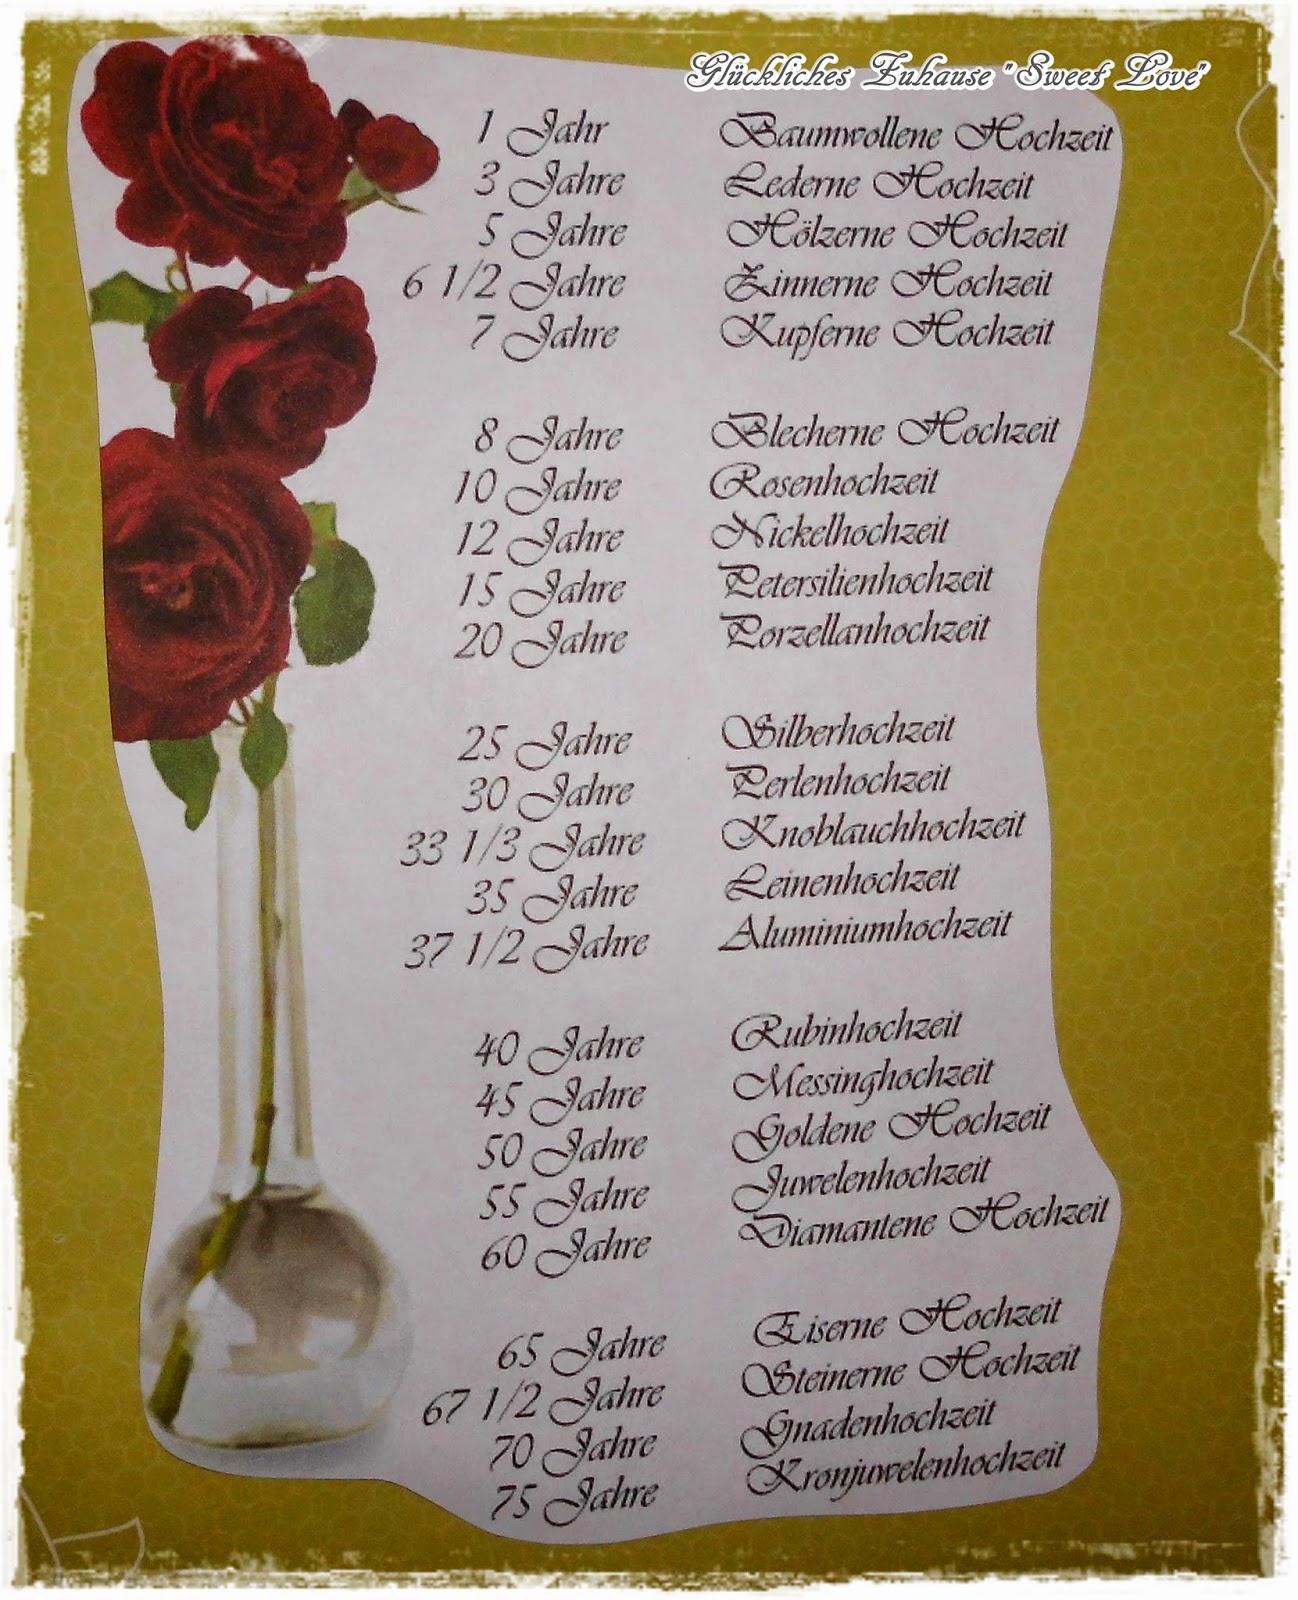 Glückliches Zuhause "Sweet Love"
1 Jahr Baumwollene Hochzeit
3 Jahre Lederne Hochzeit
5 Jahre Hölzerne Hochzeit
6 1/2 Jahre Zinnerne Hochzeit
7 Jahre Kupferne Hochzeit
8 Jahre Blecherne Hochzeit
10 Jahre Rosenhochzeit
12 Jahre Nickelhochzeit
15 Jahre Petersilienhochzeit
20 Jahre Porzellanhochzeit
25 Jahre Silberhochzeit
30 Jahre Perlenhochzeit
33 1/3 Jahre Knoblauchhochzeit
35 Jahre Leinenhochzeit
37 1/2 Jahre Aluminiumhochzeit
40 Jahre Rubinhochzeit
45 Jahre Messinghochzeit
50 Jahre Goldene Hochzeit
55 Jahre Juwelenhochzeit
60 Jahre Diamantene Hochzeit
65 Jahre Eiserne Hochzeit
67 1/2 Jahre Steinerne Hochzeit
70 Jahre Gnadenhochzeit
75 Jahre Kronjuwelenhochzeit